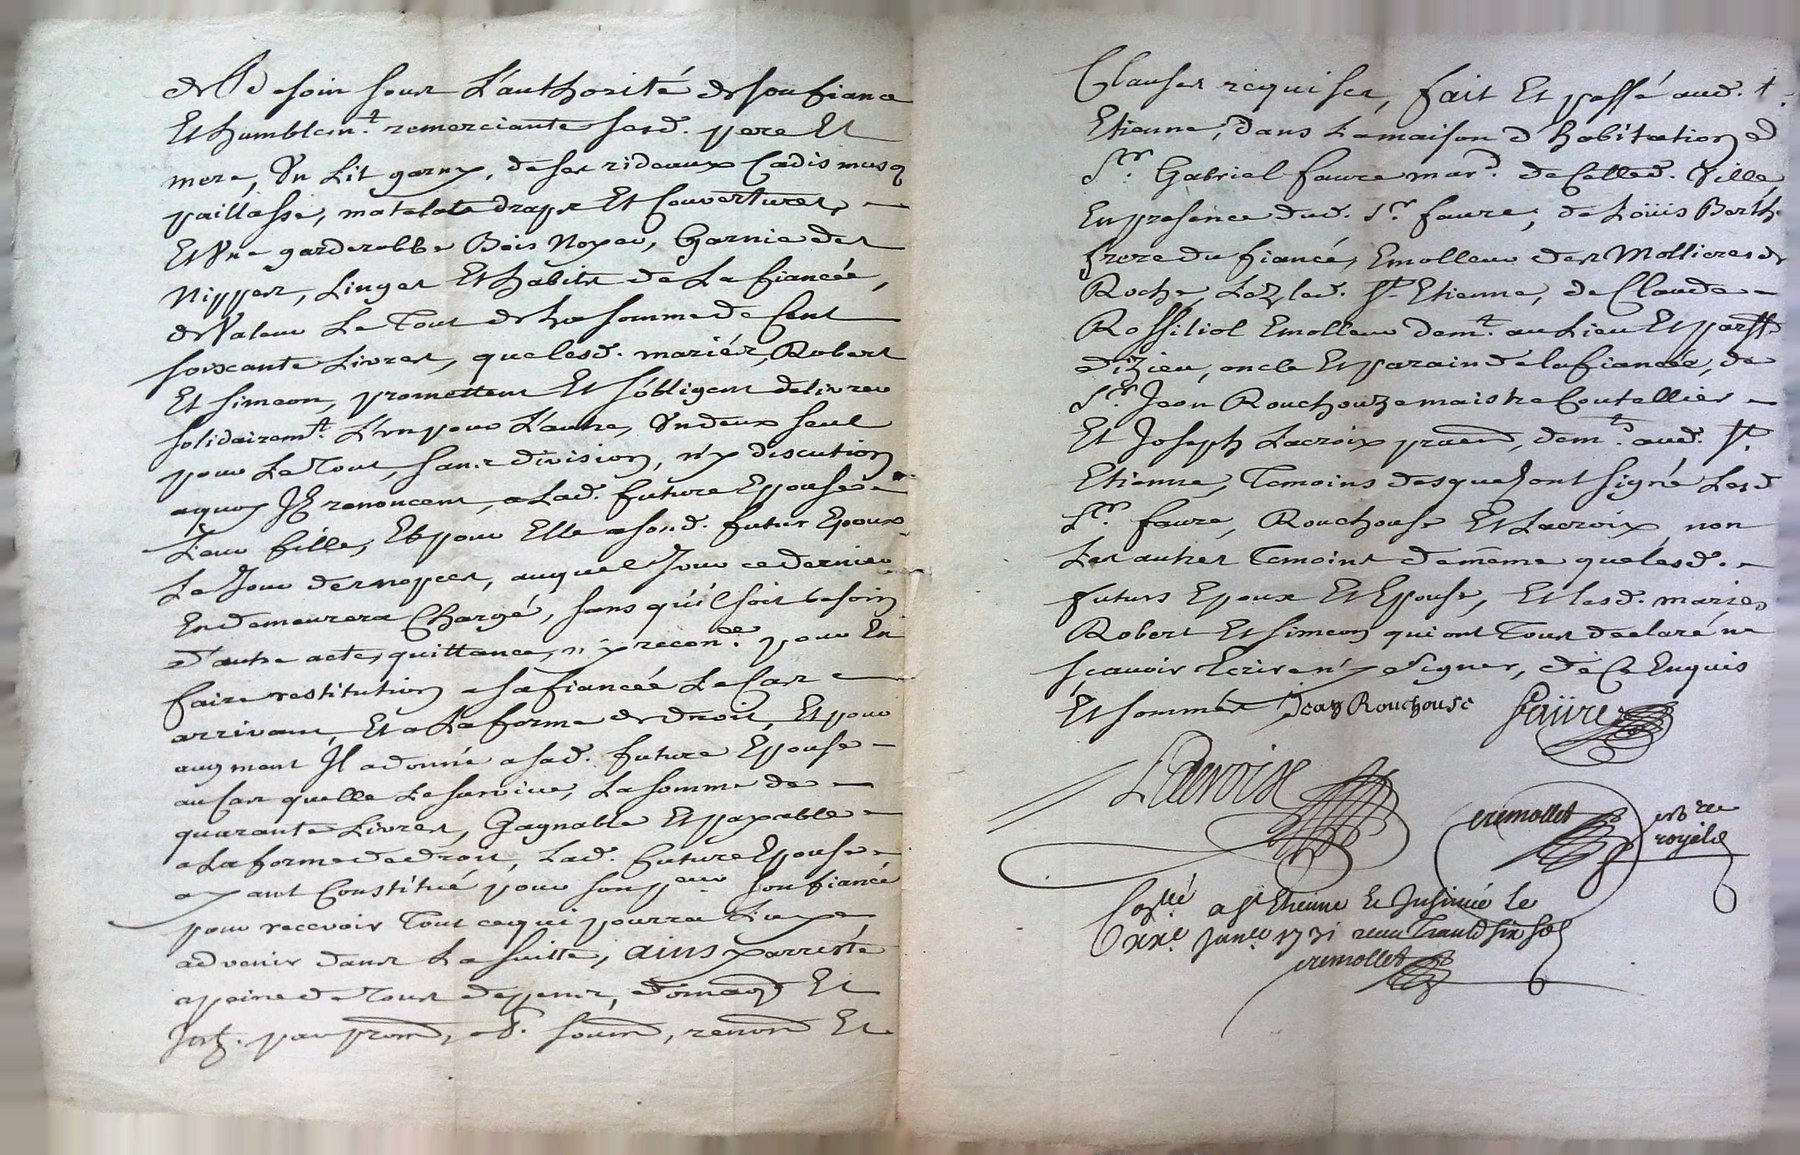 de besoin sous L'authorité de son fiancé
Et humblem.t remerciante sesd. pere Et
mere, Un Lit garny, de ses rideaux Cadis musq
paillasse, matelate draps Et Couvertures,
Et Une garderobbe Bois Noyer, Garnie des
Nippes, Linges Et habits de La fiancée,
de Valeur Le Tout de la somme de Cent
soixante Livres, que lesd. mariés, Robert
Et simeon, promettent Et s'obligent de livrer
solidairem.t L'un pour L'autre, Un deux seul
pour Le Tout, sans division, n'y discution
a quoy Ilz renoncent, a Lad. future Epouse
Leur fille, Et pour Elle a sond. futur Epoux
Le Jour des nopces, auquel Jour ce dernier
En demeurera Chargé, sans qu'il soit besoin
d'autre acte, quittance, n'y recon.de pour En
faire restitution a sa fiancée Le Cas
arrivant, Et a La forme de droit, Et pour
augment Il a donné a sad. future Epouse
au Cas quelle Le survive, La somme de
quarante Livres, Gagnable Et payable
a La forme de droit, Lad. future Epouse
ayant Constitué pour son p.eur son fiancé
pour recevoir Tout ce qui pourra Luy
advenir dans La suitte, ainsy arresté
a peine de Tous depens, domag Et
Jntz. par prom, , soum, renon Et
Clauses requises, fait Et passé aud. st.
Etienne, dans La maison d'habitation d
Sr. Gabriel faure mard. de Celled. Ville,
En presence dud. Sr. faure, de Loüis Berth
frere du fiancé, Emolleur des Mollieres de
Roche Lez led. St. Etienne, de Claude
Rossiliol Emolleur dem.t au Lieu Et parsse
dizieu, oncle Et parain de la fiancée, de
Sr. Jean Rouchouze maistre Coutellier
Et Joseph Lacroix pratn, dem.t aud. St.
Etienne, Temoins desquels ont signé Lesd
Srs. faure, Rouchouse Et Lacroix, non
Les autres Temoins de même que lesd.
futurs Epoux Et Epouse, Et lesd. mariés
Robert Et simeon qui ont Tous declaré ne
sçavoir Ecrire n'y signer, de Ce Enquis
Et sommés Jean Rouchouse faüre
Lacroix
cremollet no.re
royal
Con.llé a st Etienne Et Jnsinué le
xxe. Janer. 1731 receu Trante six sols
cremollet